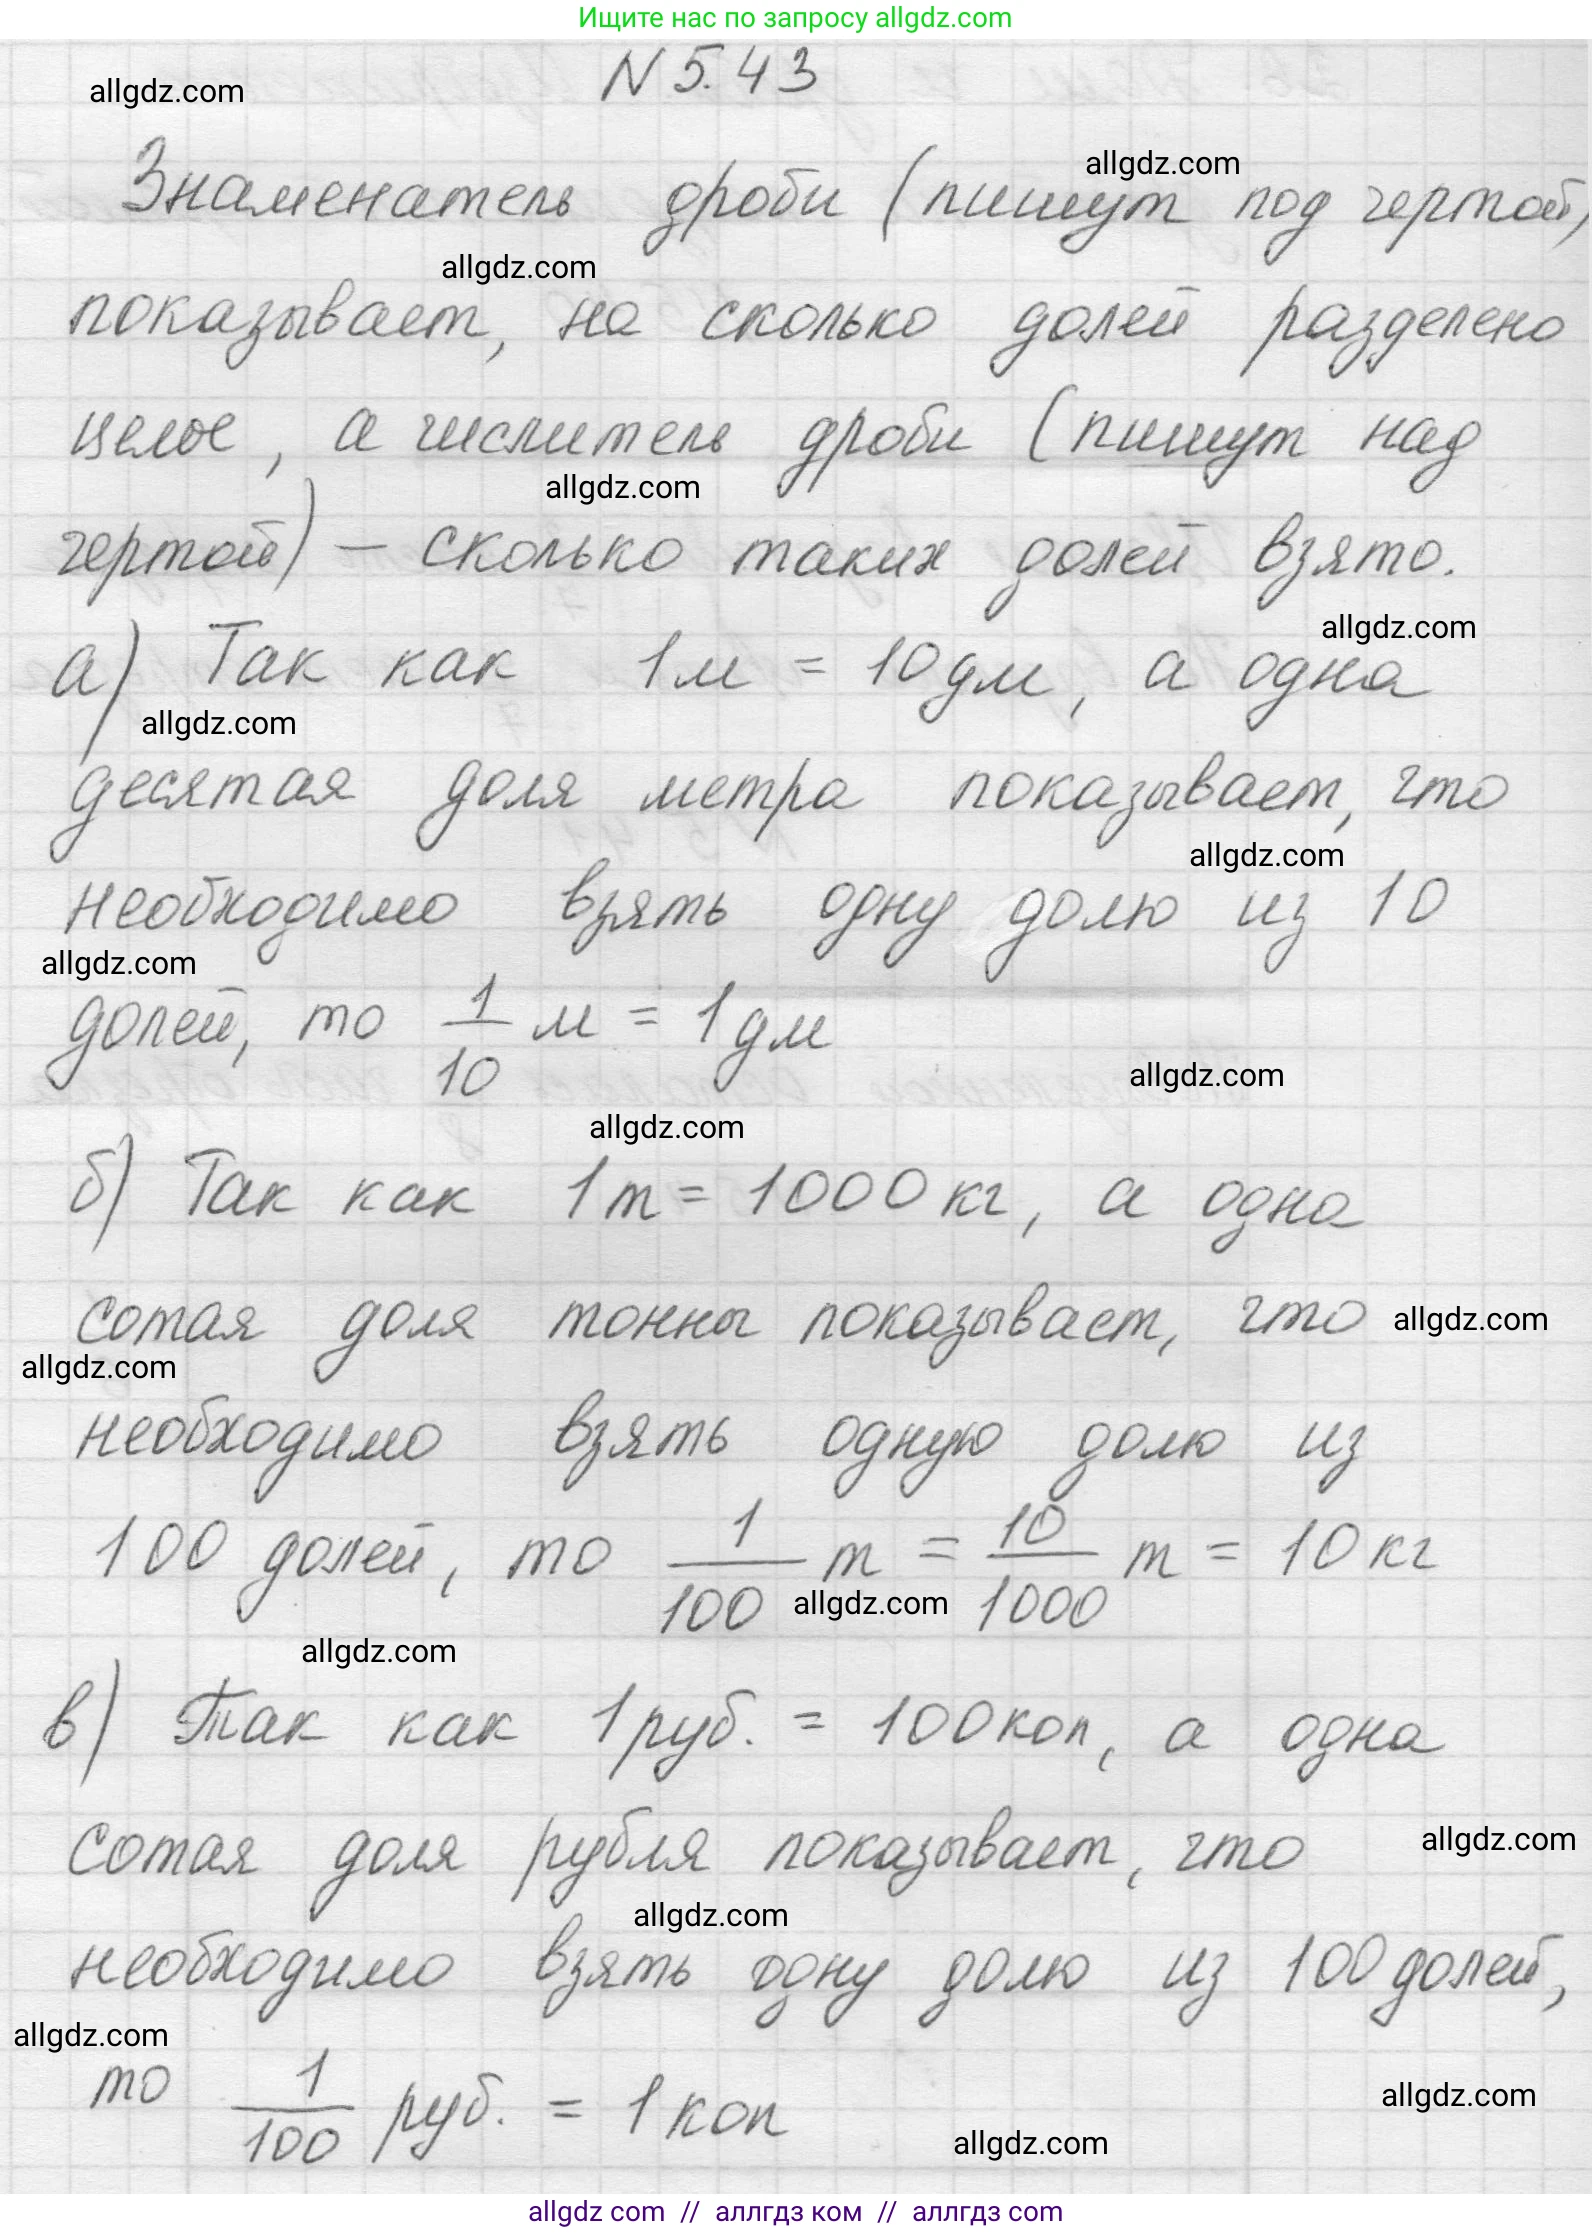 Ищите нас по запросу allgdz.com
N 5.43
allgdz.com
allgdz.com
Знаменатель дроби (пишут под чертой)
allgdz.com
показывает, на сколько долей разделено
целое, а числитель дроби (пишут над
allgdz.com
чертой) – сколько таких долей взято.
allgdz.com
а) Так как 1м = 10дм, а одна
allgdz.com
десятая доля метра показывает, что
allgdz.com
необходимо взять одну долю из 10
allgdz.com
долей, то 1/10 м = 1дм
allgdz.com
allgdz.com
б) Так как 1т = 1000 кг, а одна
сотая доля тонны показывает, что
allgdz.com
allgdz.com
необходимо взять одную долю из
100 долей, то 1/100 т = 10/1000 т = 10 кг
allgdz.com
allgdz.com
в) Так как 1руб. = 100коп, а одна
сотая доля рубля показывает, что
allgdz.com
allgdz.com
необходимо взять одну долю из 100 долей,
allgdz.com
то 1/100 руб. = 1 коп
allgdz.com
allgdz.com
allgdz.com // аллгдз ком // аллгдз.com